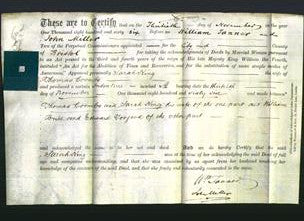 These are to Certify that on the Thirtieth day of November in the year
One thousand eight hundred and sixty six Before us William Tanner and
John Miller
Two of the Perpetual Commissioners appointed for the City and County
of Bristol for taking the acknowledgments of Deeds by Married Women pursuant to
an Act passed in the third and fourth years of the reign of His late Majesty King William the Fourth
intituled "An Act for the Abolition of Fines and Recoveries and for the substitution of more simple modes of
Assurance" Appeared personally Sarah King the wife of
Thomas
and produced a certain marked bearing date the thirtieth
day of November One thousand eight hundred and sixty and made between
Thomas and Sarah King his wife of the one part and William
and Edward of the other part
and acknowledged the same to be her act and deed And we do hereby Certify that the said
Sarah King was at the time of her acknowledging the said Deed of full
age and competent understanding and that she was examined by us apart from her husband touching her
knowledge of the contents of the said Deed and that she freely and voluntarily consented to the same
W Tanner
John Miller